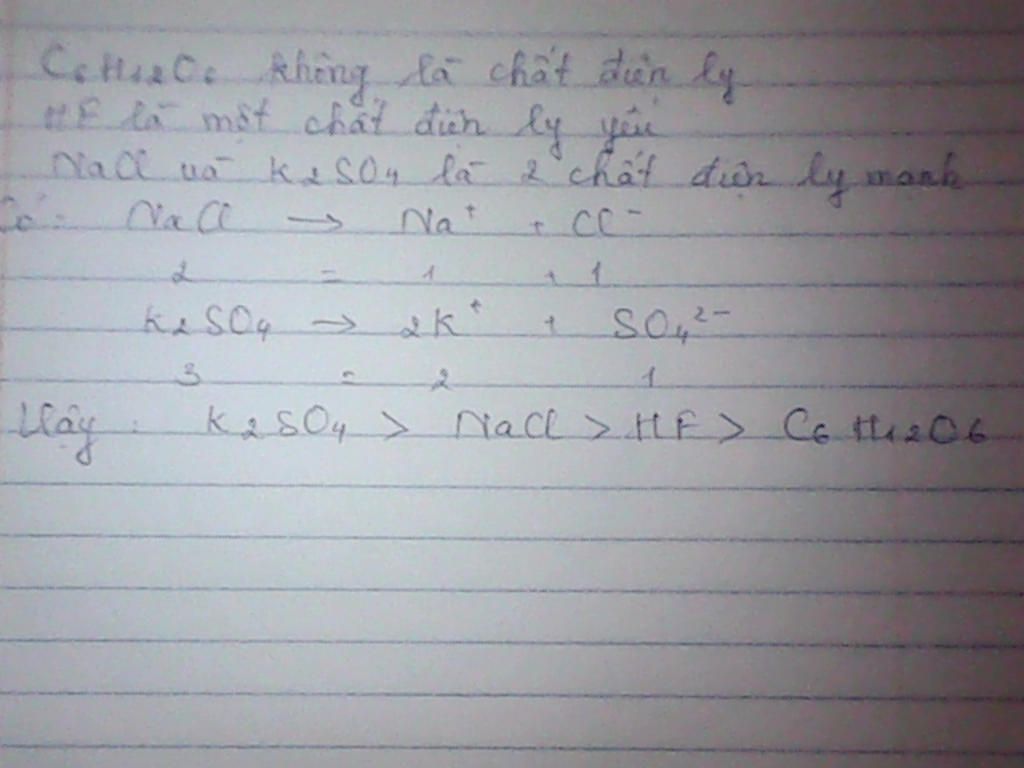 C6H12O6 không là chất điện ly
HF là một chất điện ly yếu
NaCl và K2SO4 là 2 chất điện ly mạnh
Có: NaCl → Na+ + Cl-
2 = 1 + 1
K2SO4 → 2K+ + SO4 2-
3 = 2 1
Vậy: K2SO4 > NaCl > HF > C6H12O6